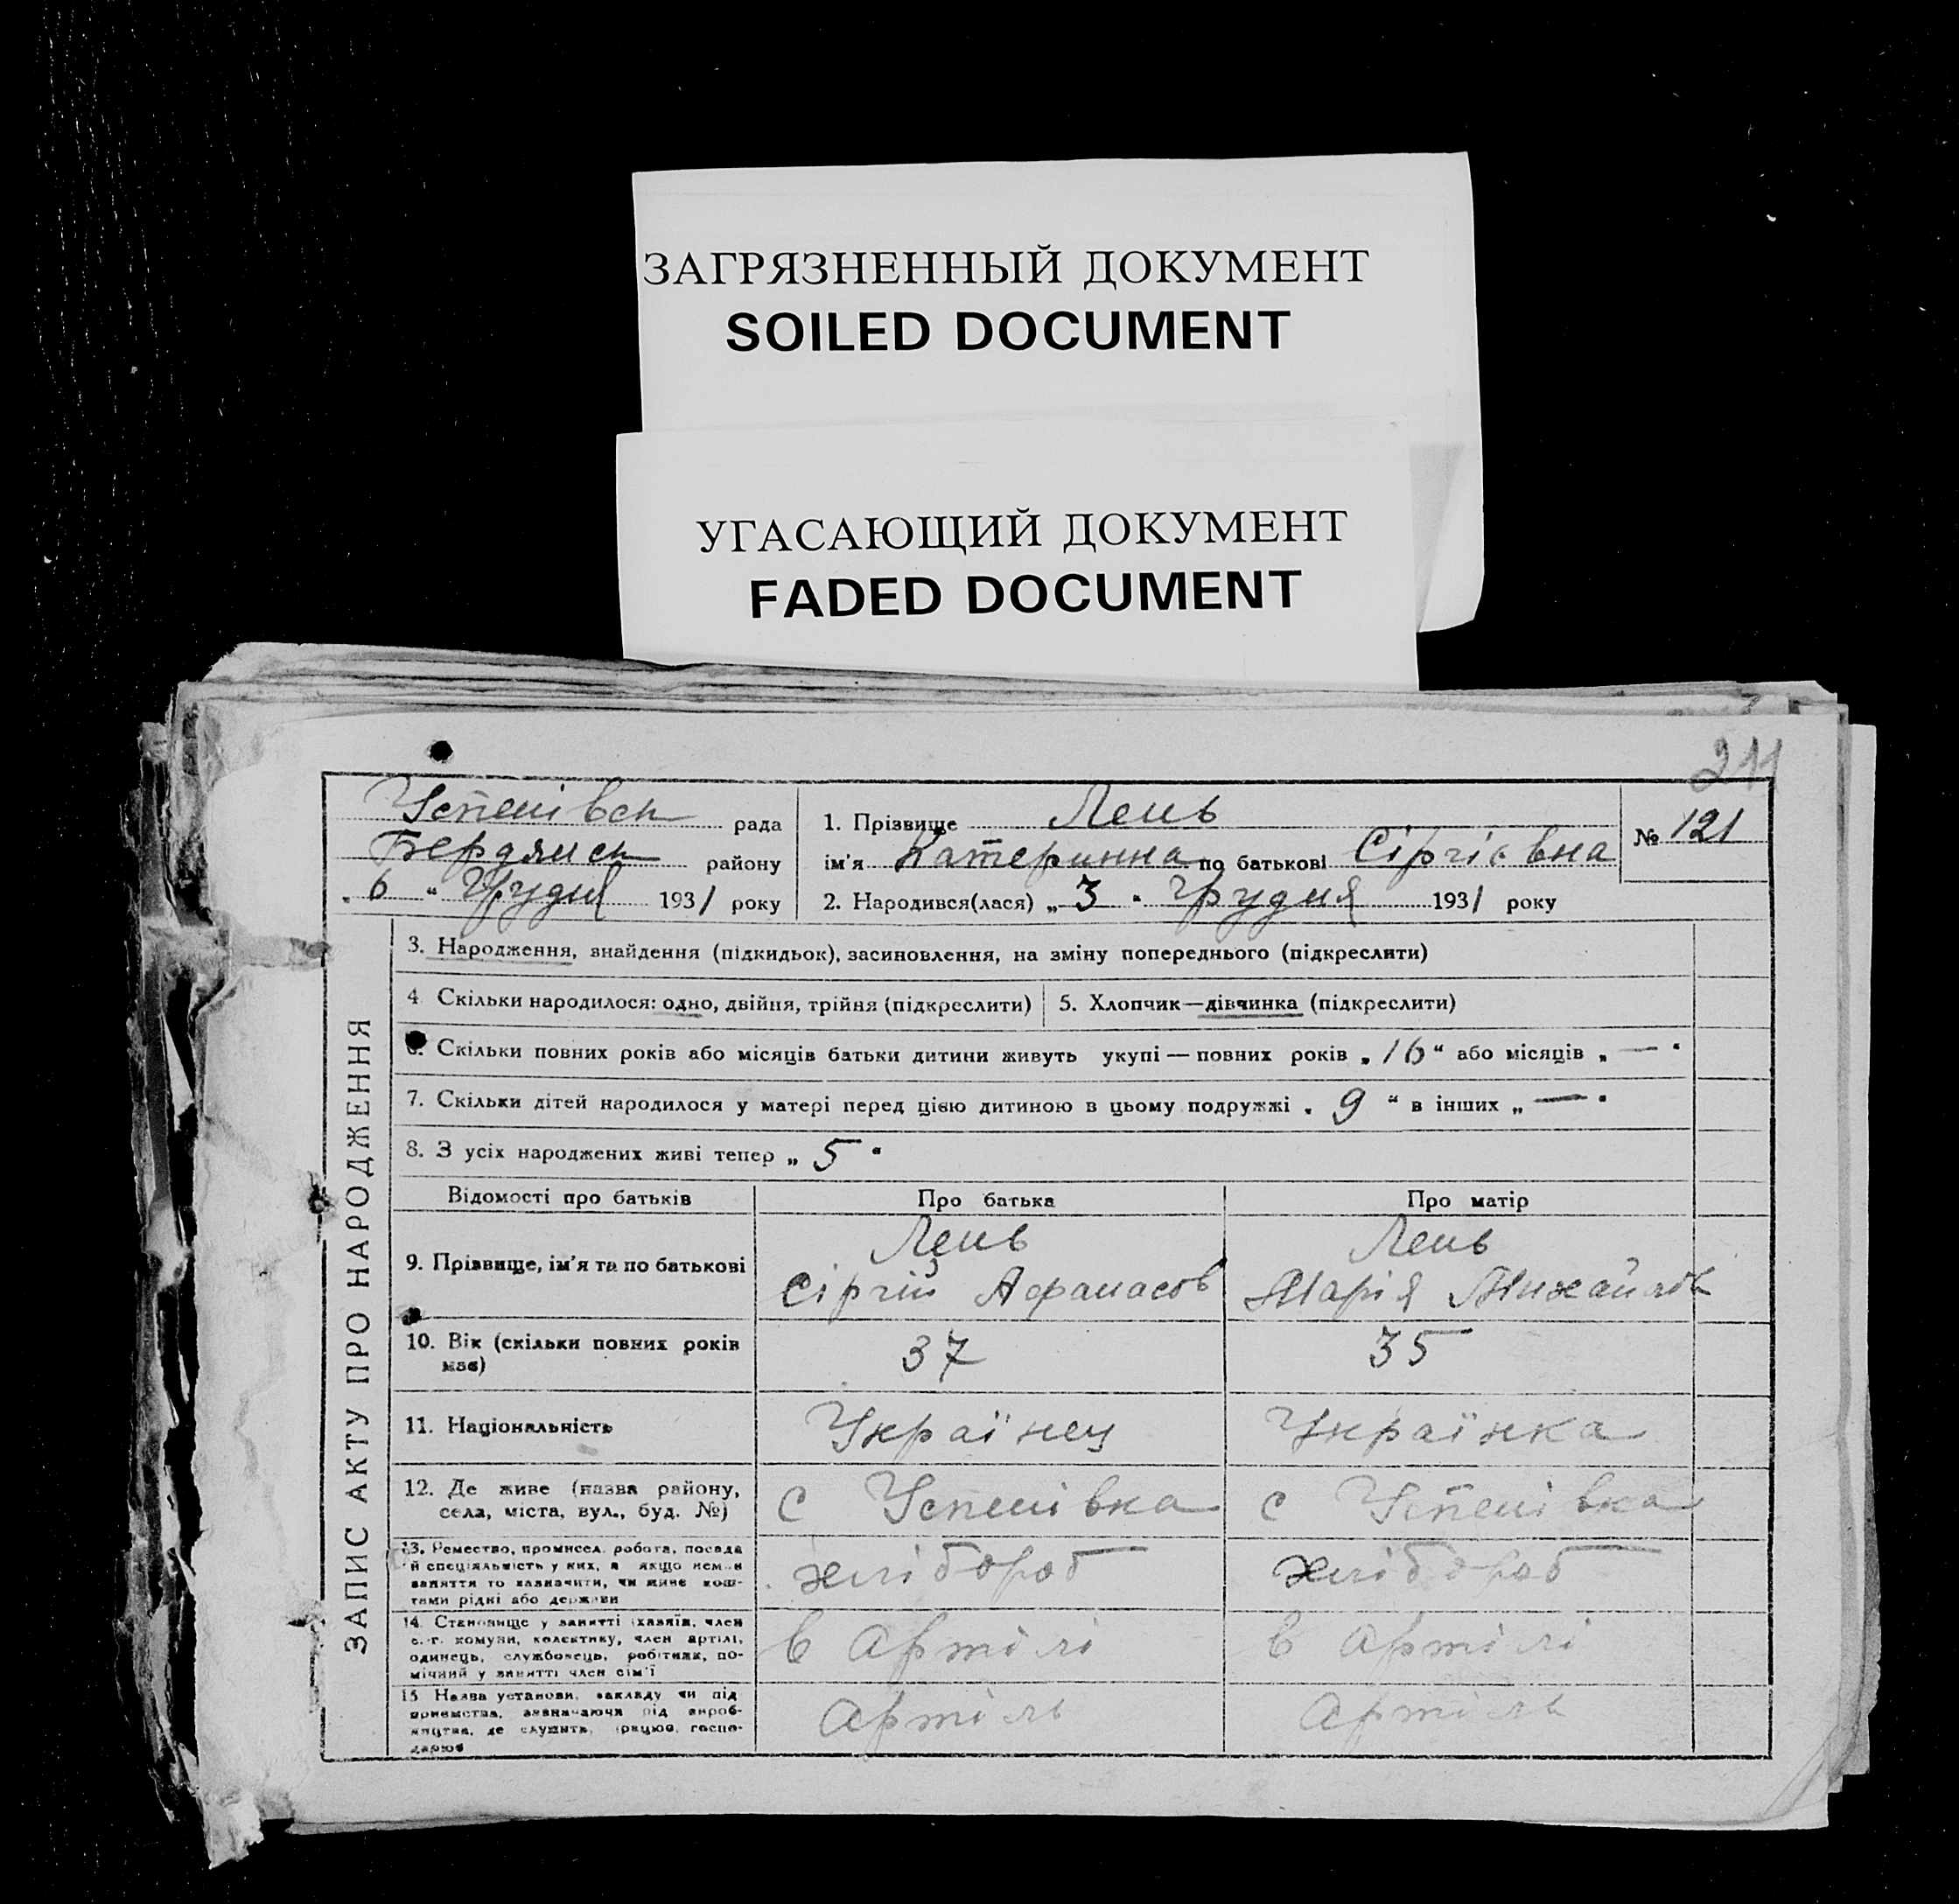 ЗАГРЯЗНЕННЫЙ ДОКУМЕНТ
SOILED DOCUMENT
УГАСАЮЩИЙ ДОКУМЕНТ
FADED DOCUMENT
211
Успенівськ рада
Бердянськ району
„ 6 “ Грудня 1931 року
1. Прізвище Лень
ім'я Катеринна по батькові Сіргієвна
2. Народився(лася) „ 3 “ Грудня 1931 року
№ 121
ЗАПИС АКТУ ПРО НАРОДЖЕННЯ
3. Народження, знайдення (підкидьок), засиновлення, на зміну попереднього (підкреслити)
4 Скільки народилося: одно, двійня, трійня (підкреслити) 5. Хлопчик—дівчинка (підкреслити)
6. Скільки повних років або місяців батьки дитини живуть укупі — повних років „ 16 “ або місяців „ — “
7. Скільки дітей народилося у матері перед цією дитиною в цьому подружжі „ 9 “ в інших „ — “
8. З усіх народжених живі тепер „ 5 “
Відомості про батьків Про батька Про матір
9. Прізвище, ім'я та по батькові
Лень
Сіргій Афанасов
Лень
Марія Михайлов
10. Вік (скільки повних років
має)
37
35
11. Національність
Українец
Українка
12. Де живе (назва району,
села, міста, вул., буд. №)
с Успенівка
с Успенівка
13. Ремество, промисел, робота, посада
й спеціяльність у них, а якщо немає
заняття то зазначити, чи живе кош-
тами рідні або держави
хлібороб
хлібороб
14. Становище у занятті (хазяїн, член
с.-г. комуни, колективу, член артілі,
одинець, службовець, робітник, по-
мічний у занятті член сім'ї
в Артілі
в Артілі
15 Назва установи, закладу чи під
приємства, зазначаючи рід вироб-
ництва, де служить, працює, госпо-
дарює
Артіль
Артіль